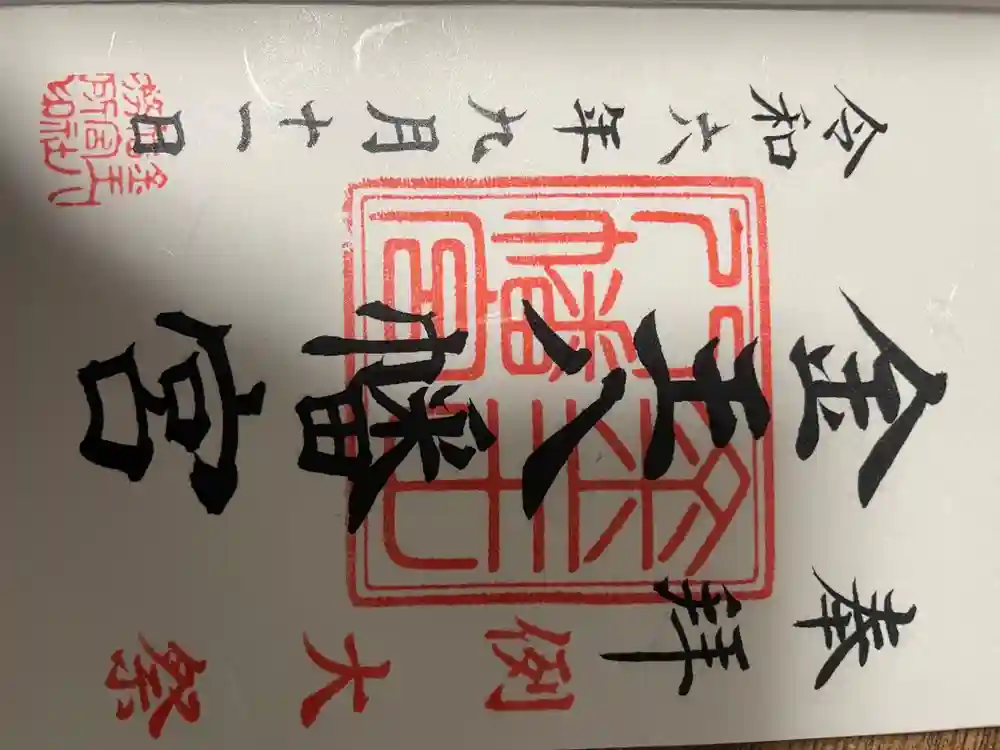 奉拝
例大祭
金王八幡宮
令和六年九月十一日
金王八
幡宮社
務所印